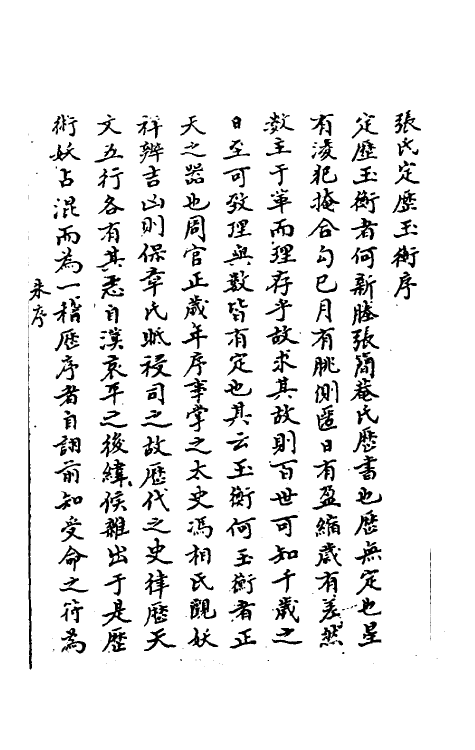 張氏定歷玉衡序
定歷玉衡者何新塍張簡菴氏歷書也歷無定也星
有淩犯掩合勾已月有朓側匿日有盈縮歲有差然
数主于筭而理存乎故求其故則百世可知千歲之
日至可致理與數皆有定也其云玉衡何玉衡者正
天之器也周官正歲年序事掌之太史馮相氏觀妖
祥辨吉凶則保章氏眡祲司之故歷代之史律歷天
文五行各有其志自漢哀平之後緯候雜出于是歷
術妖占混而為一稽歷序者自詡前知受命之符為
朱序